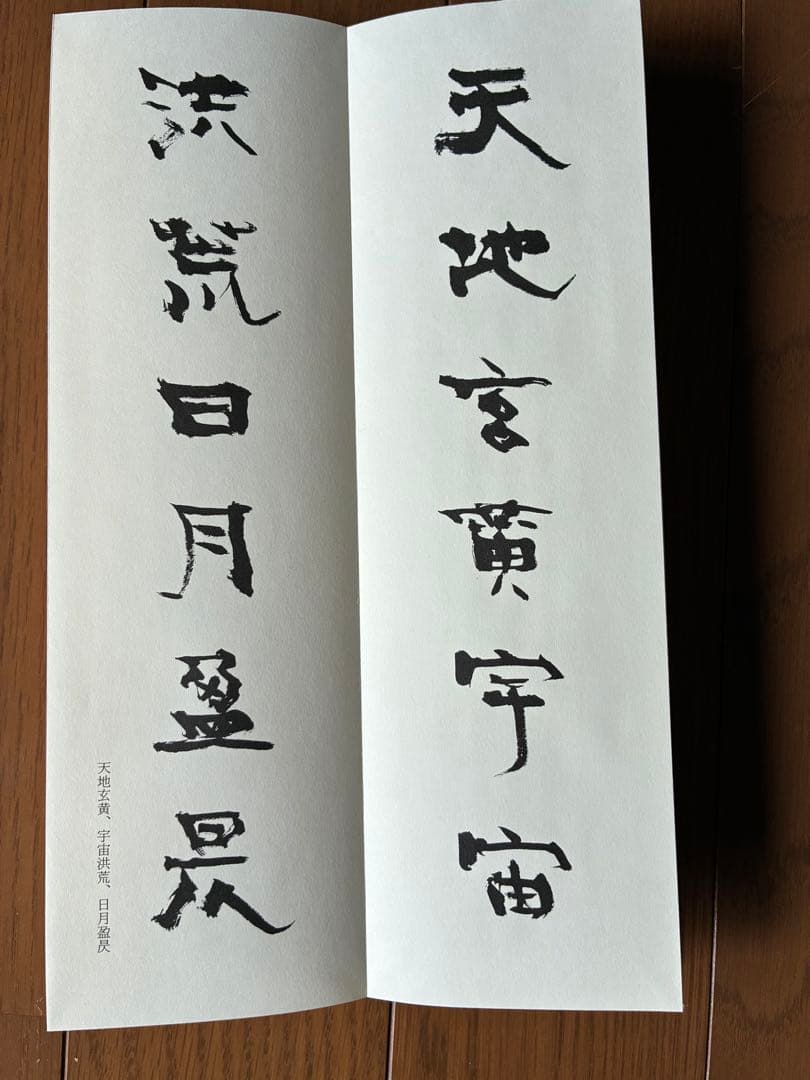 天地玄黄宇宙
洪荒日月盈昃
天地玄黄、宇宙洪荒、日月盈昃